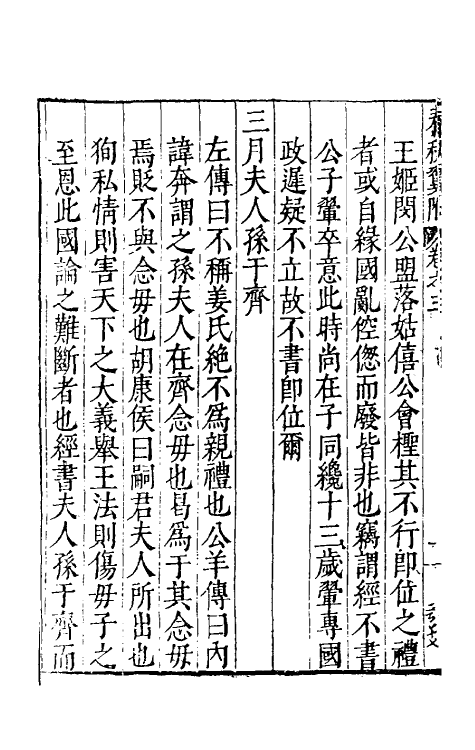 王姬閔公盟落姑僖公會檉其不行即位之禮
者或自緣國亂倥傯而廢皆非也竊謂經不書
公子翬卒意此時尚在子同纔十三歲翬專國
政遲疑不立故不書即位爾
三月夫人孫于齊
左傳曰不稱姜氏絶不爲親禮也公羊傳曰内
諱奔謂之孫夫人在齊念毋也曷爲于其念毋
焉貶不與念毋也胡康侯曰嗣君夫人所出也
狥私情則害天下之大義舉王法則傷毋子之
至恩此國論之難斷者也經書夫人孫于齊而